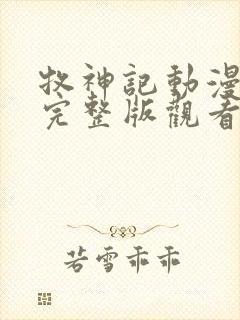 牧神記動漫
完整版觀看
若雪乖乖